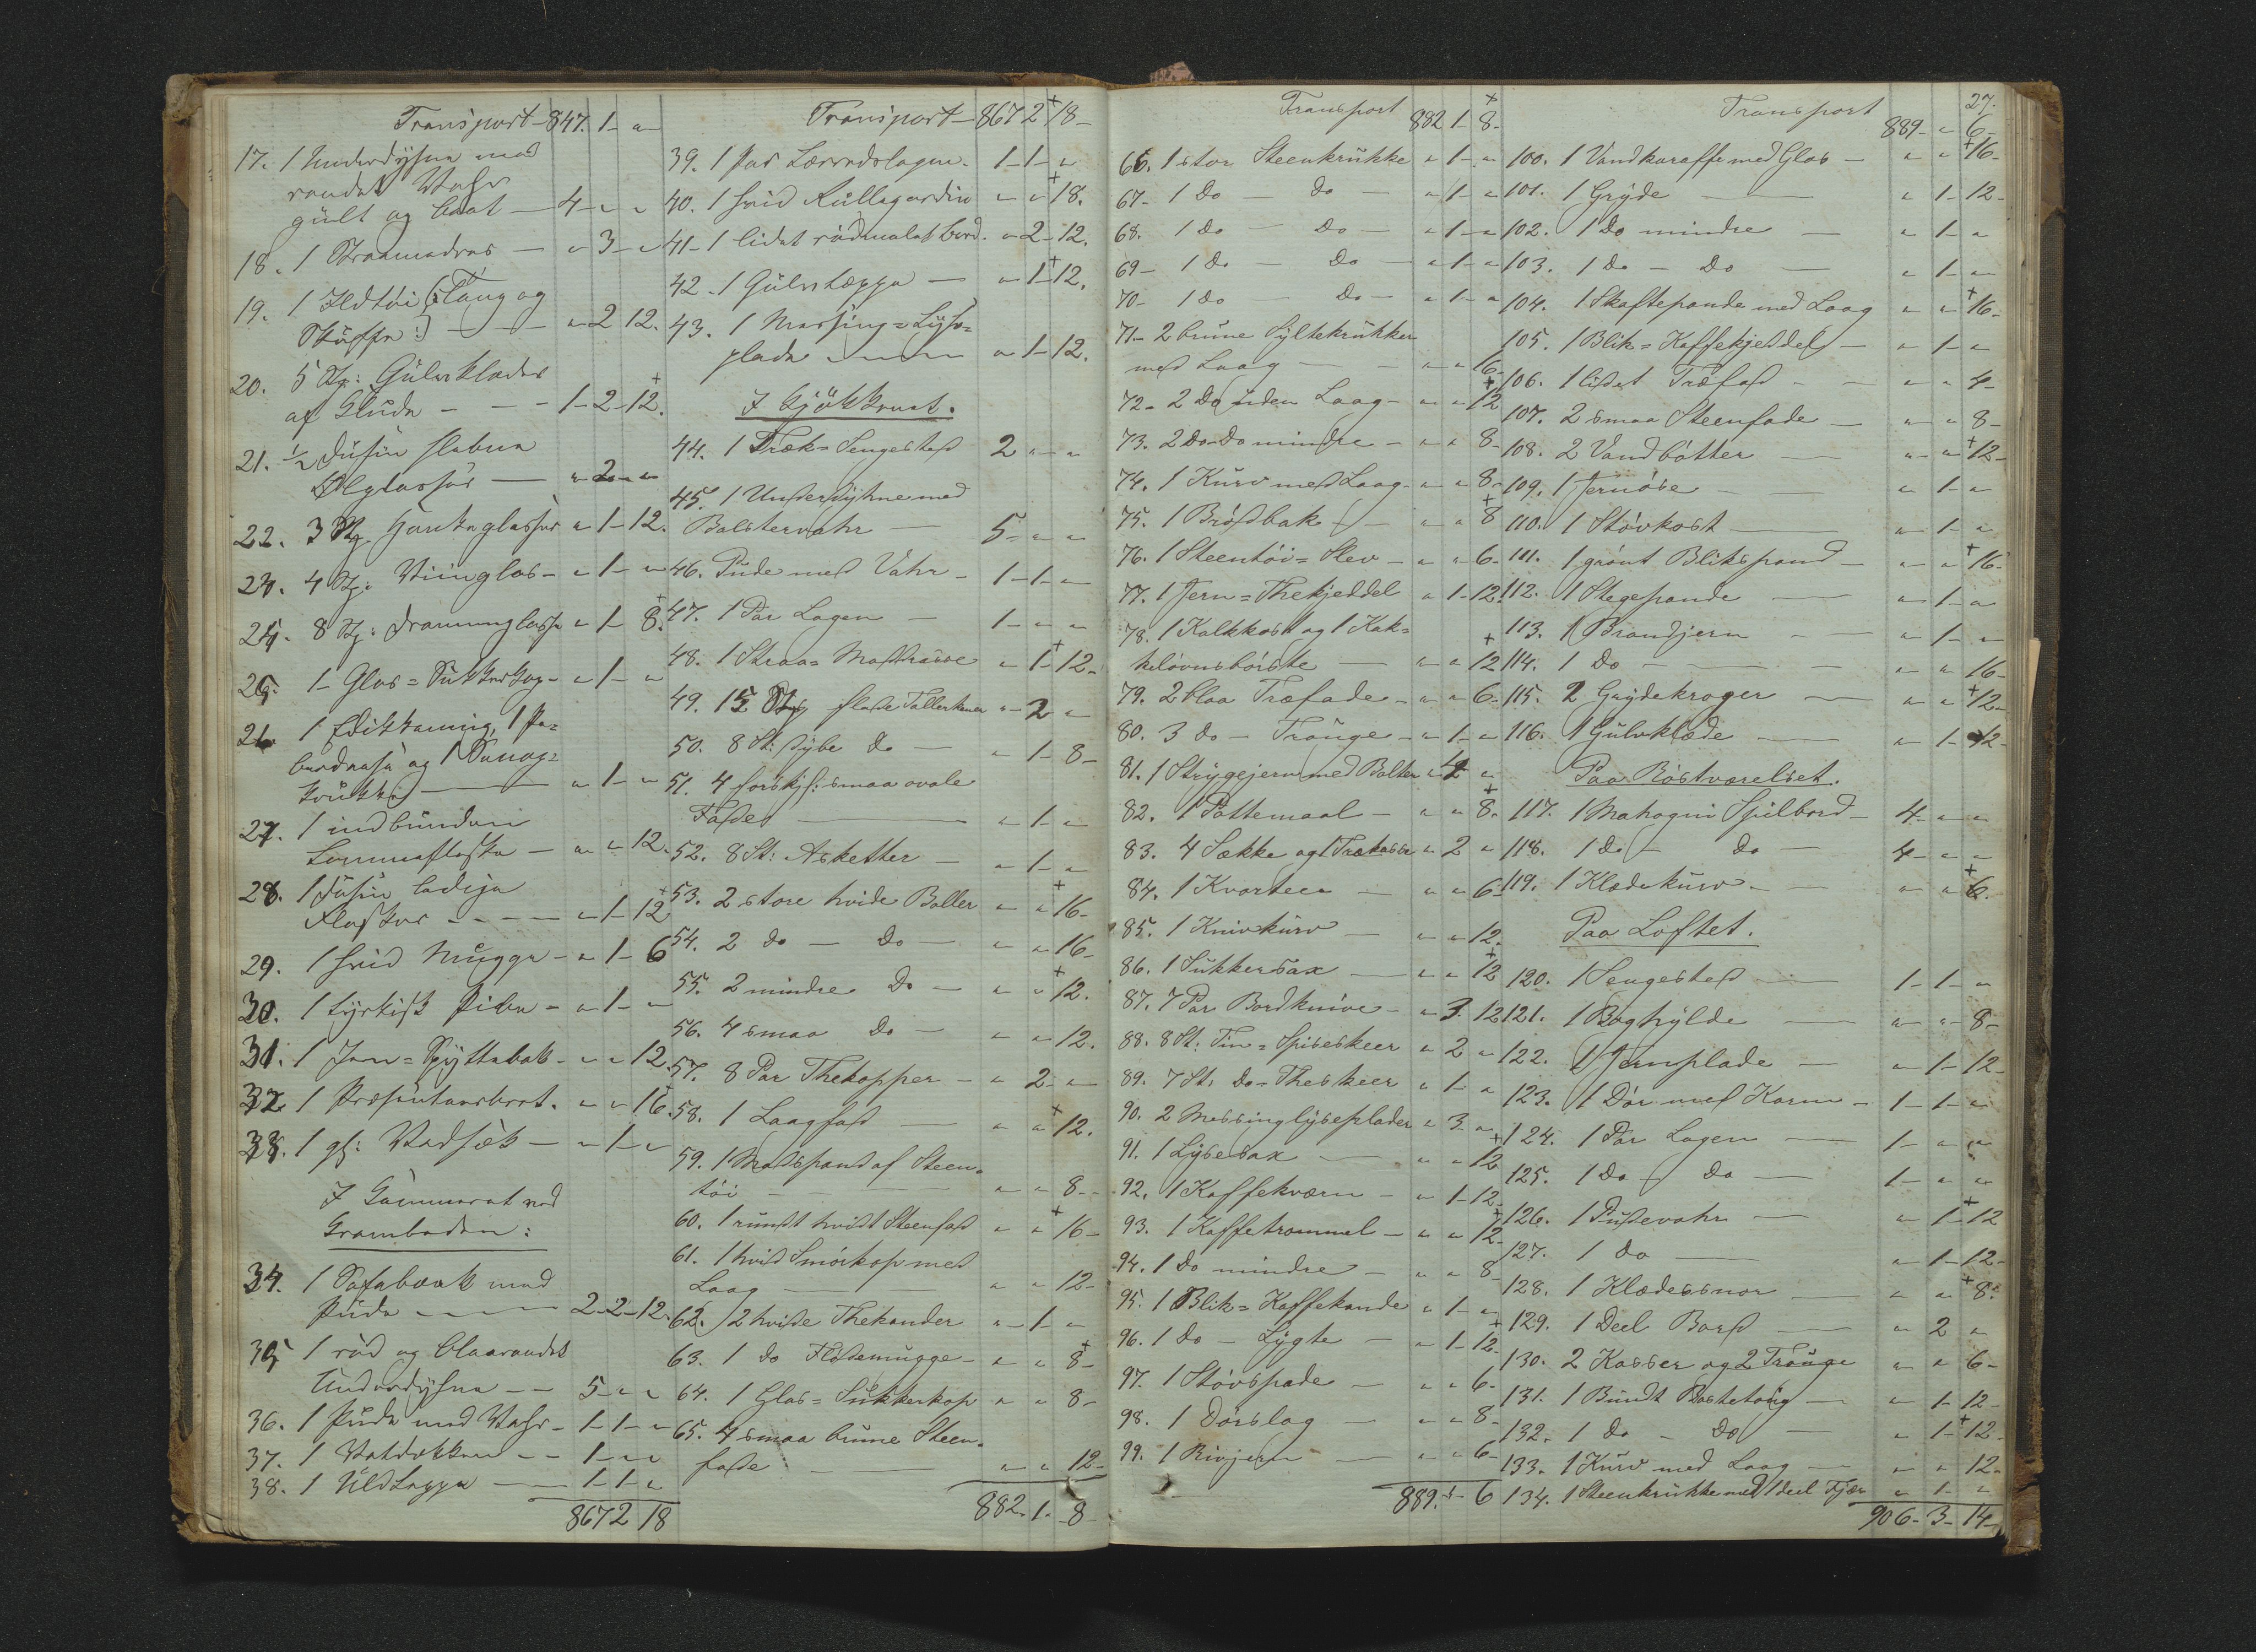 Transport - 847. 1 - " -
17. 1 Underdyhne med
randet Vahr
gult og blaat — 4 - " "
18. 1 Straamadras — " 3 - "
19. 1 Ildtøi (: Tang og
Skuffe :) — " 2 12.
20. 5 St: Gulvklæder
af Stude - - - 1 - 2 - 12.
21. ½ Dusin slebne
Ølglasser — " 2 - "
22. 3 St. Hankeglasser " 1 - 12.
23. 4 St: Viinglas - " 1 - "
24. 8 St: Dramunglasse " 1 - 8.
25. 1 Glas = Sukkerkop - " 1 - "
26. 1 Edikkamnig, 1 Pe-
berdaase og 1 Senop=
krukke — " 1 - "
27. 1 indbunden
Lommeflaske — " " 12.
28. 1 Dusin ledige
Flasker - - - - " 1 - 12
29. 1 hvid Mugge - " 1 - 6
30. 1 tyrkisk Pibe - " 1 - "
31. 1 Jern = Spyttebak - " " 12.
32. 1 Præsenteerbret. " " 16.
33. 1 gl: Vadsæk — " 1 - "
I Kammeret ved
Kramboden:
34. 1 Sofabænk med
Pude — 2 - 2 - 12.
35 1 rød og blaarandet
Underdyhne - - 5 - " "
36. 1 Pude med Vahr - 1 - 1 - "
37. 1 Vatdækken - - 1 - " "
38. 1 Uldteppe — 1 - 1 - "
867 2 18
Transport - 867 2 18 -
39. 1 Par Lærredslagen. 1 - 1 - "
40. 1 hvid Rullegardin " " 18.
41 - 1 lidet rødmalet Bord. " 2 - 12.
42 - 1 Gulvteppe — " 1 - 12.
43. 1 Messing = Lyse=
plade " 1 - 12.
I Kjøkkenet.
44. 1 Træk = Sengested 2 " - "
45. 1 Underdyhne med
Bolstervahr — 5 - " "
46. Pude med Vahr - 1 - 1 - "
47. 1 Par Lagen — 1 - " "
48. 1 Straa = Mattrasse " 1 - 12 -
49. 15 St flade Tallerkener " - 2 "
50. 8 St: dybe do — " 1 - 8 -
51. 4 forskjl: smaa ovale
Fade — " 1 - "
52. 8 St: Asketter — " 1 - "
53. 2 store hvide Boller " " 16 -
54. 2 do — do — " " 16 -
55. 2 mindre do — " " 12.
56. 4 smaa do — " " 12.
57. 8 Par Thekopper - " 2 - "
58. 1 Laagfad — " " 12.
59. 1 Madspand af Steen=
tøi — " " 8 -
60. 1 rundt hvidt Steenfad " " 16 -
61. 1 hvid Smørkop med
Laag — " " 12 -
62. 2 hvide Thekander " 1 - "
63. 1 do Flødemugge - " " 8 -
64. 1 Glas = Sukkerkop " " 8 -
65. 4 smaa brune Steen=
fade — " " 12 -
882. 1. 8
Transport 882 1 - 8 -
66. 1 stor Steenkrukke " 1 - "
67 - 1 do — do — " 1 - "
68. 1 do — do — " 1 - "
69 - 1 do — do — " 1 - "
70 - 1 do — do — " 1 - "
71 - 2 brune Syltekrukker
med Laag — " " 6 -
72 - 2 do uden Laag - " " 12
73. 2 do - do mindre — " " 8 -
74. 1 Kurv med Laag - " " 8 -
75. 1 Brødbak — " " 8
76. 1 Steentøi = Slev — " " 6 -
77. 1 Jern = Thekjeddel " 1 - 12.
78. 1 Kalkkost og 1 Kak=
kelovnsbørste — " " 12
79. 2 blaa Træfade - " " 6 -
80. 3 do — Trauge - " 1 - "
81. 1 Strygejern med Bolter " 4 "
82. 1 Pottemaal — " " 8.
83. 4 Sække og 1 Trækasse " 2 "
84. 1 Kvarteer — " " 6 -
85. 1 Knivkurv — " " 12.
86. 1 Sukkersax — " " 12
87. 7 Par Bordknive - " 3. 12
88. 8 St: Tin = Spiseskeer " 2 "
89. 7 St: do - Theskeer " 1 - "
90. 2 Messinglyseplader " 3 "
91. 1 Lysesax — " " 12
92. 1 Kaffekværn - " 1 - 12
93. 1 Kaffetrommel - " " 12
94. 1 do mindre - " " 8 -
95. 1 Blik = Kaffekande " 1 - "
96. 1 do — Lygte — " 1 - 12
97. 1 Støvspade — " " 6 -
98. 1 Dørslag — " " 8 -
99. 1 Rivjern — " " 6 -
889. " - 6
27.
Transport 889 - " 6 -
100. 1 Vandkaraffe med Glas — " " 16 -
101. 1 Gryde — " 1 - 12 -
102. 1 do mindre — " 1 - "
103. 1 do — do — " 1 - "
104. 1 Skaftepande med Laag " " 16 -
105. 1 Blik = Kaffekjeddel — " 1 - "
106. 1 lidet Træfad - - " " 4 -
107. 2 smaa Steenfade — " " 8 -
108. 2 Vandbøtter — " " 12 -
109. 1 Jernøse — " 1 - "
110. 1 Støvkost — " 1 - "
111. 1 grønt Blikspand — " " 16 -
112. 1 Stegepande — " 1 - "
113. 1 Brandjern - - " 1 - "
114. 1 do — " " 16 -
115. 2 Grydekroger — " " 12 -
116. 1 Gulvklæde — " 1 - 12 -
Paa Røstværelset.
117. 1 Mahogni Spilbord - 4 - " "
118. 1 do — do — 4 - " "
119. 1 Klædekurv - " " 6.
Paa Loftet.
120. 1 Sengested — 1 - 1 - "
121. 1 Boghylde — " " 8 -
122. 1 Jernplade — " 1 - 12 -
123. 1 Dør med Karm - 1 - 1 - "
124. 1 Par Lagen — 1 - " "
125. 1 do — do — 1 - " "
126. 1 Pudevahr — " 1 - 12
127. 1 do — " 1 - 12 -
128. 1 Klædessnor — " " 8.
129. 1 Deel Bord — " 2 "
130. 2 Kasser og 2 Trauge " " 6 -
131. 1 Bundt Bastetoug — " 1 - 12 -
132. 1 do — do — " 1 - 12 -
133. 1 Kurv med Laag — " " 12 -
134. 1 Steenkrukke med 1 deel Fjær " 1 - "
906 - 3 - 14 -